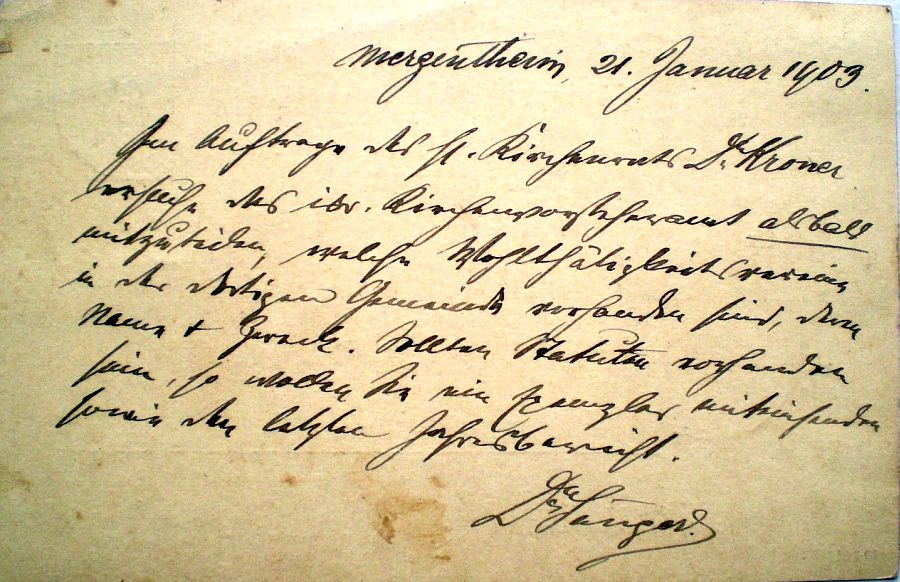 Mergentheim, 21. Januar 1903.
Im Auftrage des H. Kirchenrats Dr. Kroner
ersuche das isr. Kirchenvorsteheramt alsbald
mitzuteilen, welche Wohlthätigkeitsvereine
in der dortigen Gemeinde vorhanden sind, deren
Name + Zweck. Sollten Statuten vorhanden
sein, so wollen Sie ein Exemplar miteinsenden
sowie den letzten Jahresbericht.
Dr. Sänger.